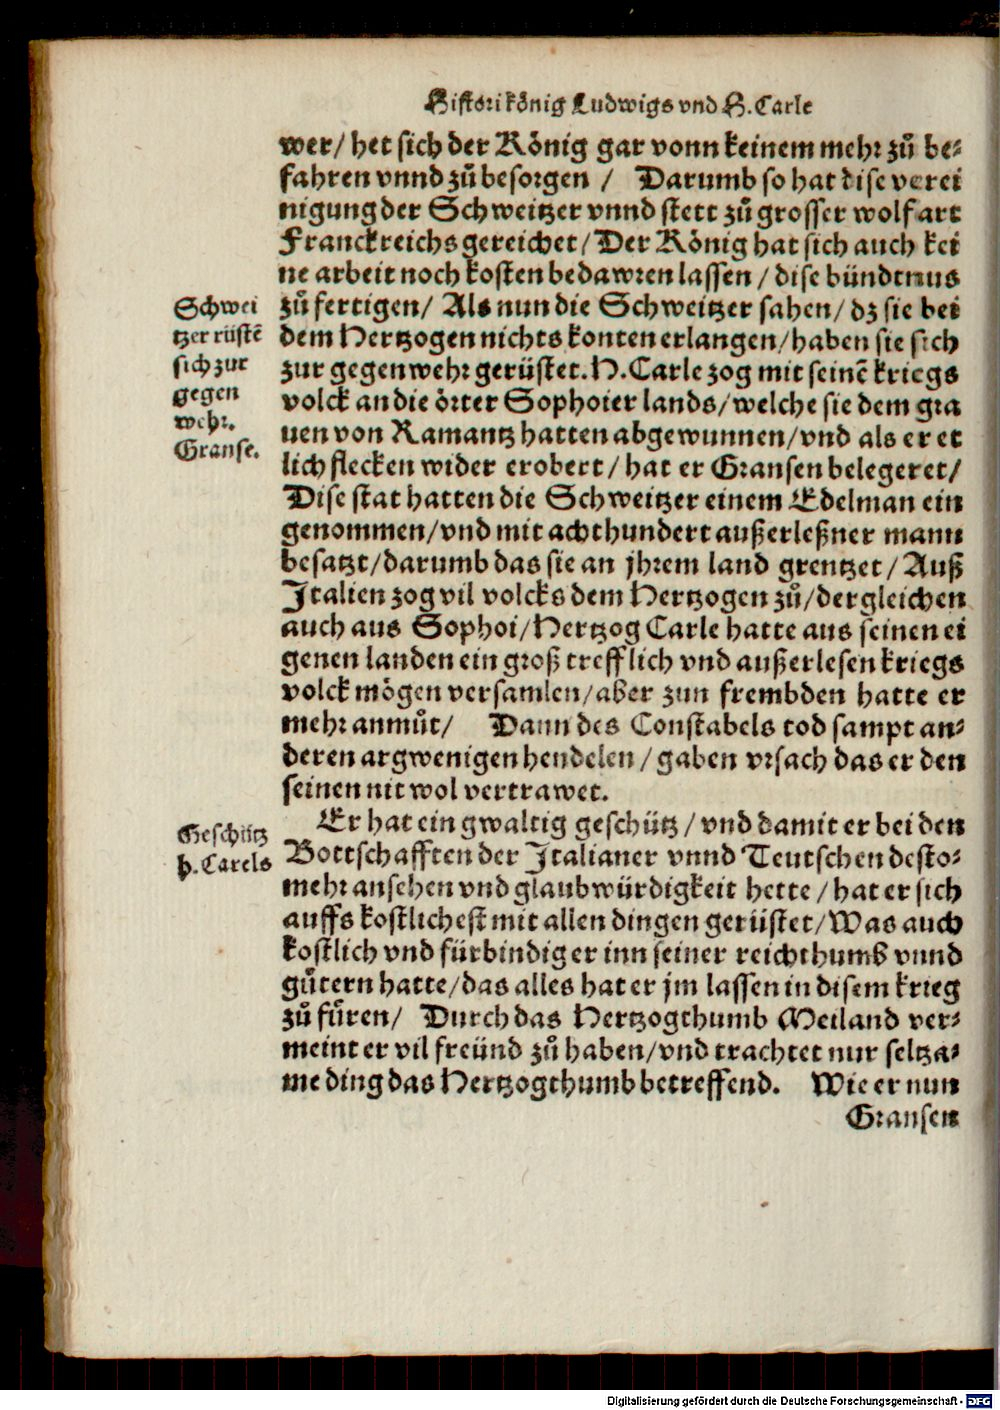 Histori kőnig Ludwigs vnd H. Carle
wer/ het sich der Kőnig gar vonn keinem mehr zů be⸗
fahren vnnd zů besorgen / Darumb so hat dise verei
nigung der Schweitzer vnnd stett zů grosser wolfart
Franckreichs gereichet/ Der Kőnig hat sich auch kei
ne arbeit noch kosten bedawren lassen / dise bündtnus
zů fertigen/ Als nun die Schweitzer sahen/ dz sie bei
dem Hertzogen nichts konten erlangen/ haben sie sich
zur gegenwehr gerüstet. H. Carle zog mit seinē kriegs
volck an die őrter Sophoier lands/ welche sie dem gra
uen von Ramantz hatten abgewunnen/ vnd als er et
lich flecken wider erobert/ hat er Gransen belegeret/
Dise stat hatten die Schweitzer einem Edelman ein
genommen/ vnd mit achthundert außerleßner mann
besatzt/ darumb das sie an jhrem land grentzet/ Auß
Italien zog vil volcks dem Hertzogen zů/ dergleichen
auch aus Sophoi/ Hertzog Carle hatte aus seinen ei
genen landen ein groß trefflich vnd außerlesen kriegs
volck mőgen versamlen/ aber zun frembden hatte er
mehr anmůt/ Dann des Constabels tod sampt an⸗
deren argwenigen hendelen/ gaben vrsach das er den
seinen nit wol vertrawet.
Schwei
tzer rüstē
sich zur
gegen
wehr.
Granse.
Er hat ein gwaltig geschütz/ vnd damit er bei den
Bottschafften der Italianer vnnd Teutschen desto⸗
mehr ansehen vnd glaubwürdigkeit hette/ hat er sich
auffs kostlichest mit allen dingen gerüstet/ Was auch
kostlich vnd fürbindig er inn seiner reichthumb vnnd
gůtern hatte/ das alles hat er jm lassen in disem krieg
zů fůren/ Durch das Hertzogthumb Meiland ver⸗
meint er vil freünd zů haben/ vnd trachtet nur seltza⸗
me ding das Hertzogthumb betreffend. Wie er nun
Gransen
Geschütz
h. Carels
Digitalisierung gefördert durch die Deutsche Forschungsgemeinschaft - DFG